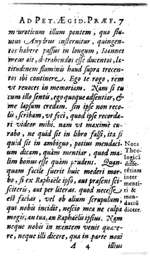 AD PET. ÆGID. PRÆF. 7
muraticum illum pontem, quo flu-
uius Anydrus insternitur, quingen-
tos habere passus in longum, Ioannes
meus ait, detrahendos esse ducentos, la-
titudinem fluminis haud supra trecen-
tos ibi continere. Ego te rogo, rem
ut reuoces in memoriam. Nam si tu
cum illo sentis, ego quoque adsentiar, &
me lapsum credam. sin ipse non reco-
lis, scribam, ut feci, quod ipse recorda-
ri videor mihi. nam ut maxime cu-
rabo, ne quid sit in libro falsi, ita si
quid sit in ambiguo, potius mendaci-
um dicam, quàm mentiar, quod ma-
lim bonus esse quàm prudens. Quan-
quam facile fuerit huic mederi mor-
bo, si ex Raphaële ipso, aut praesens sci-
sciteris, aut per literas. quod necesse
est facias, vel ob alium scrupulum,
qui nobis incidit, nescio mea ne culpa
magis, an tua, an Raphaëlis ipsius. Nam
neque nobis in mentem venit quære-
re, neque illi dicere, qua in parte noui
A 4 illius
Nota
Theolo-
gicã
differẽ-
tiam
inter
menti-
ri &
men-
daciũ
dicere.